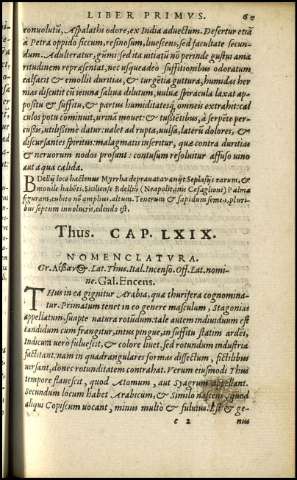 LIBER PRIMVS. 60
conuolutũ, Aspalathi odore, ex India aduectum. Desertur etiã
à Petra oppido siccum, resinosum, liuescens, sed facultate secun-
dum. Adulteratur, gũmi: sed ita vitiatũ nõ perinde gustui ama
ritudinem repræsentat, nec vsqueadeo suffitionibus odoratum
calfacit & emollit durities, & turgẽtia guttura, humidas her
nias discutit cũ ieiuna saliua dilutum, vuluæ spiracula laxat ap-
positu & suffitu, & partus humiditatesq́; omneis extrahit: cal
culos potu cominuit, urinã mouet: & tussiẽtibus, à serpẽte percussis,
utilissimè datur: valet ad rupta, vulsa, laterũ dolores, &
discursantes spiritus: malagmatis inseritur, quæ contra durities
& neruorum nodos prosunt: contusum resoluitur affuso uino
aut aqua calida.
BDellÿ loco hactenus Myrrha deprauata vanÿt Seplasÿs rarum, &
monile habẽti. Siciliense Bdelliũ (Neapolitanis Cefaglioni) Palmæ
figuram, cubito nõ amplius altum. Tenerum & sapidum semen, pluri-
bus septum inuolucris, edendo est.
Thus. CAP. LXIX.
NOMENCLATVRA.
Lat. Thus. Ital. Incenso. Off. Lat. nomi-
ne. Gal. Encens.
THus in ea gignitur Arabia, quæ thurifera cognomina-
tur. Primatum tenet in eo genere masculum, Stagonias
appellatum, suapte natura rotundum. tale autem indiuiduum est
candidum cum frangitur, intus pingue, in suffitu statim ardẽs,
Indicum uerò fuluescit, & colore liuet, sed rotundum industria
factitant. nam in quadrangulares formas dissectum, fictilibus
uersant, donec rotunditatem contrahat. Verum eiusmodi Thus
tempore flauescit, quod Atomum, aut Syagrum appellant.
Secundum locum habet Arabicum, & Similo nascens, quod
aliqui Copiscum uocant, minus multò & fuluius. Est & ge-
c 2 nus